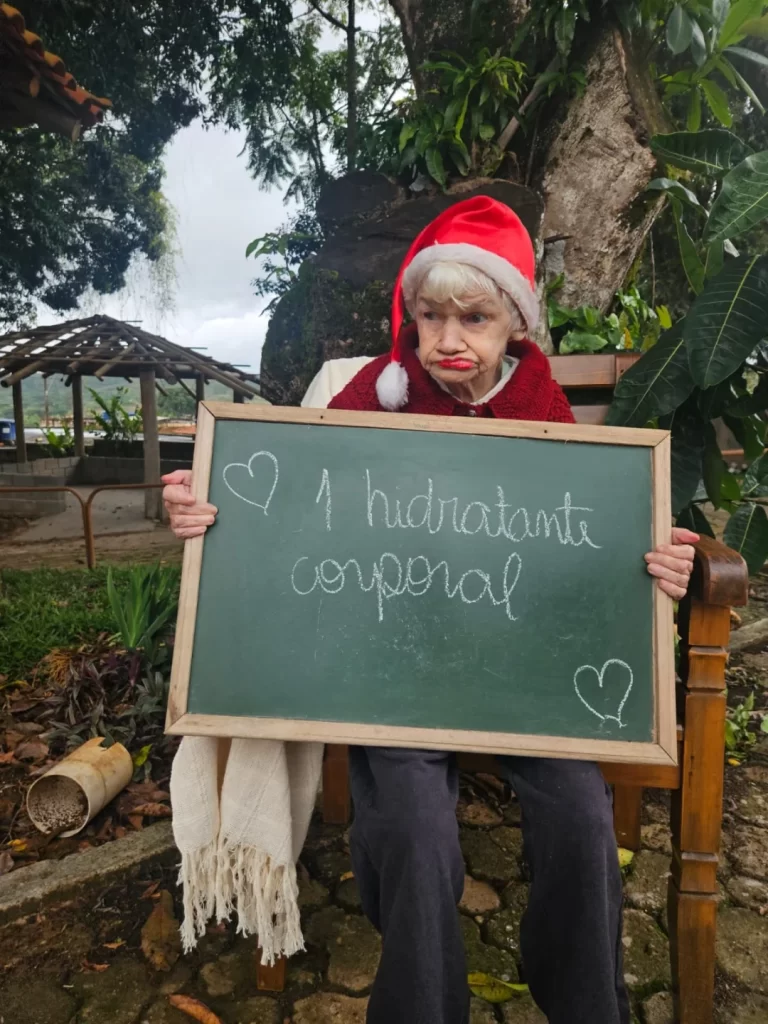 1 hidratante
corporal